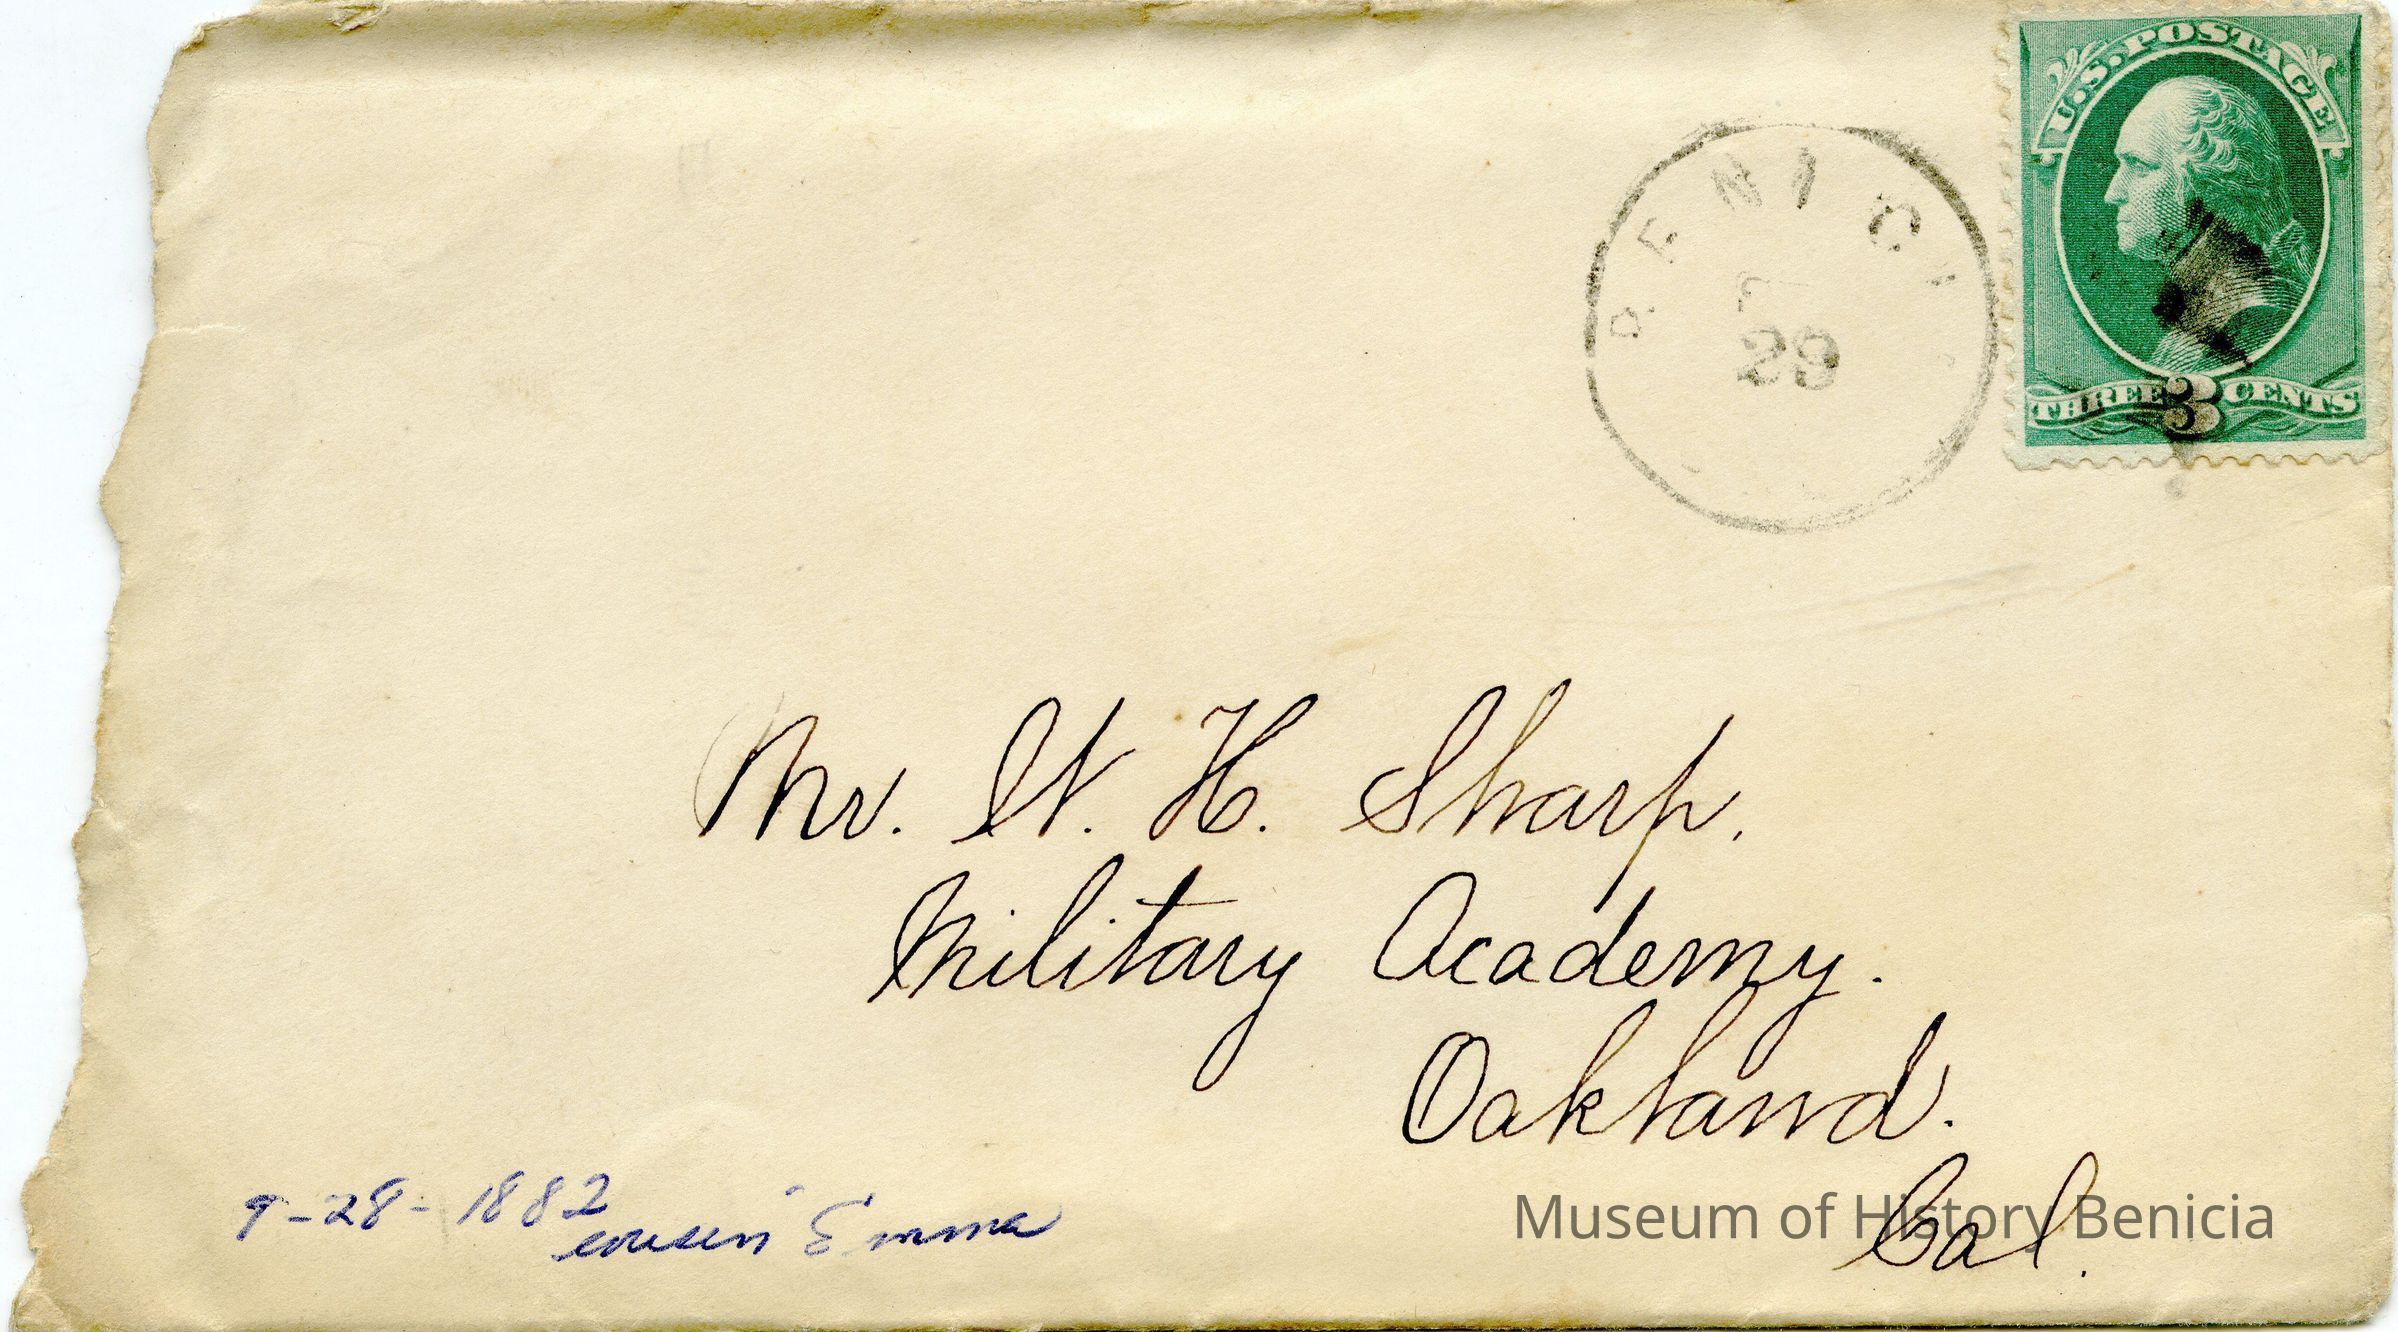 U.S. POSTAGE
THREE 3 CENTS
BENICI
29
Mr. W. H. Sharp,
Military Academy.
Oakland.
Cal.
9-28-1882
cousin Emma
Museum of History Benicia